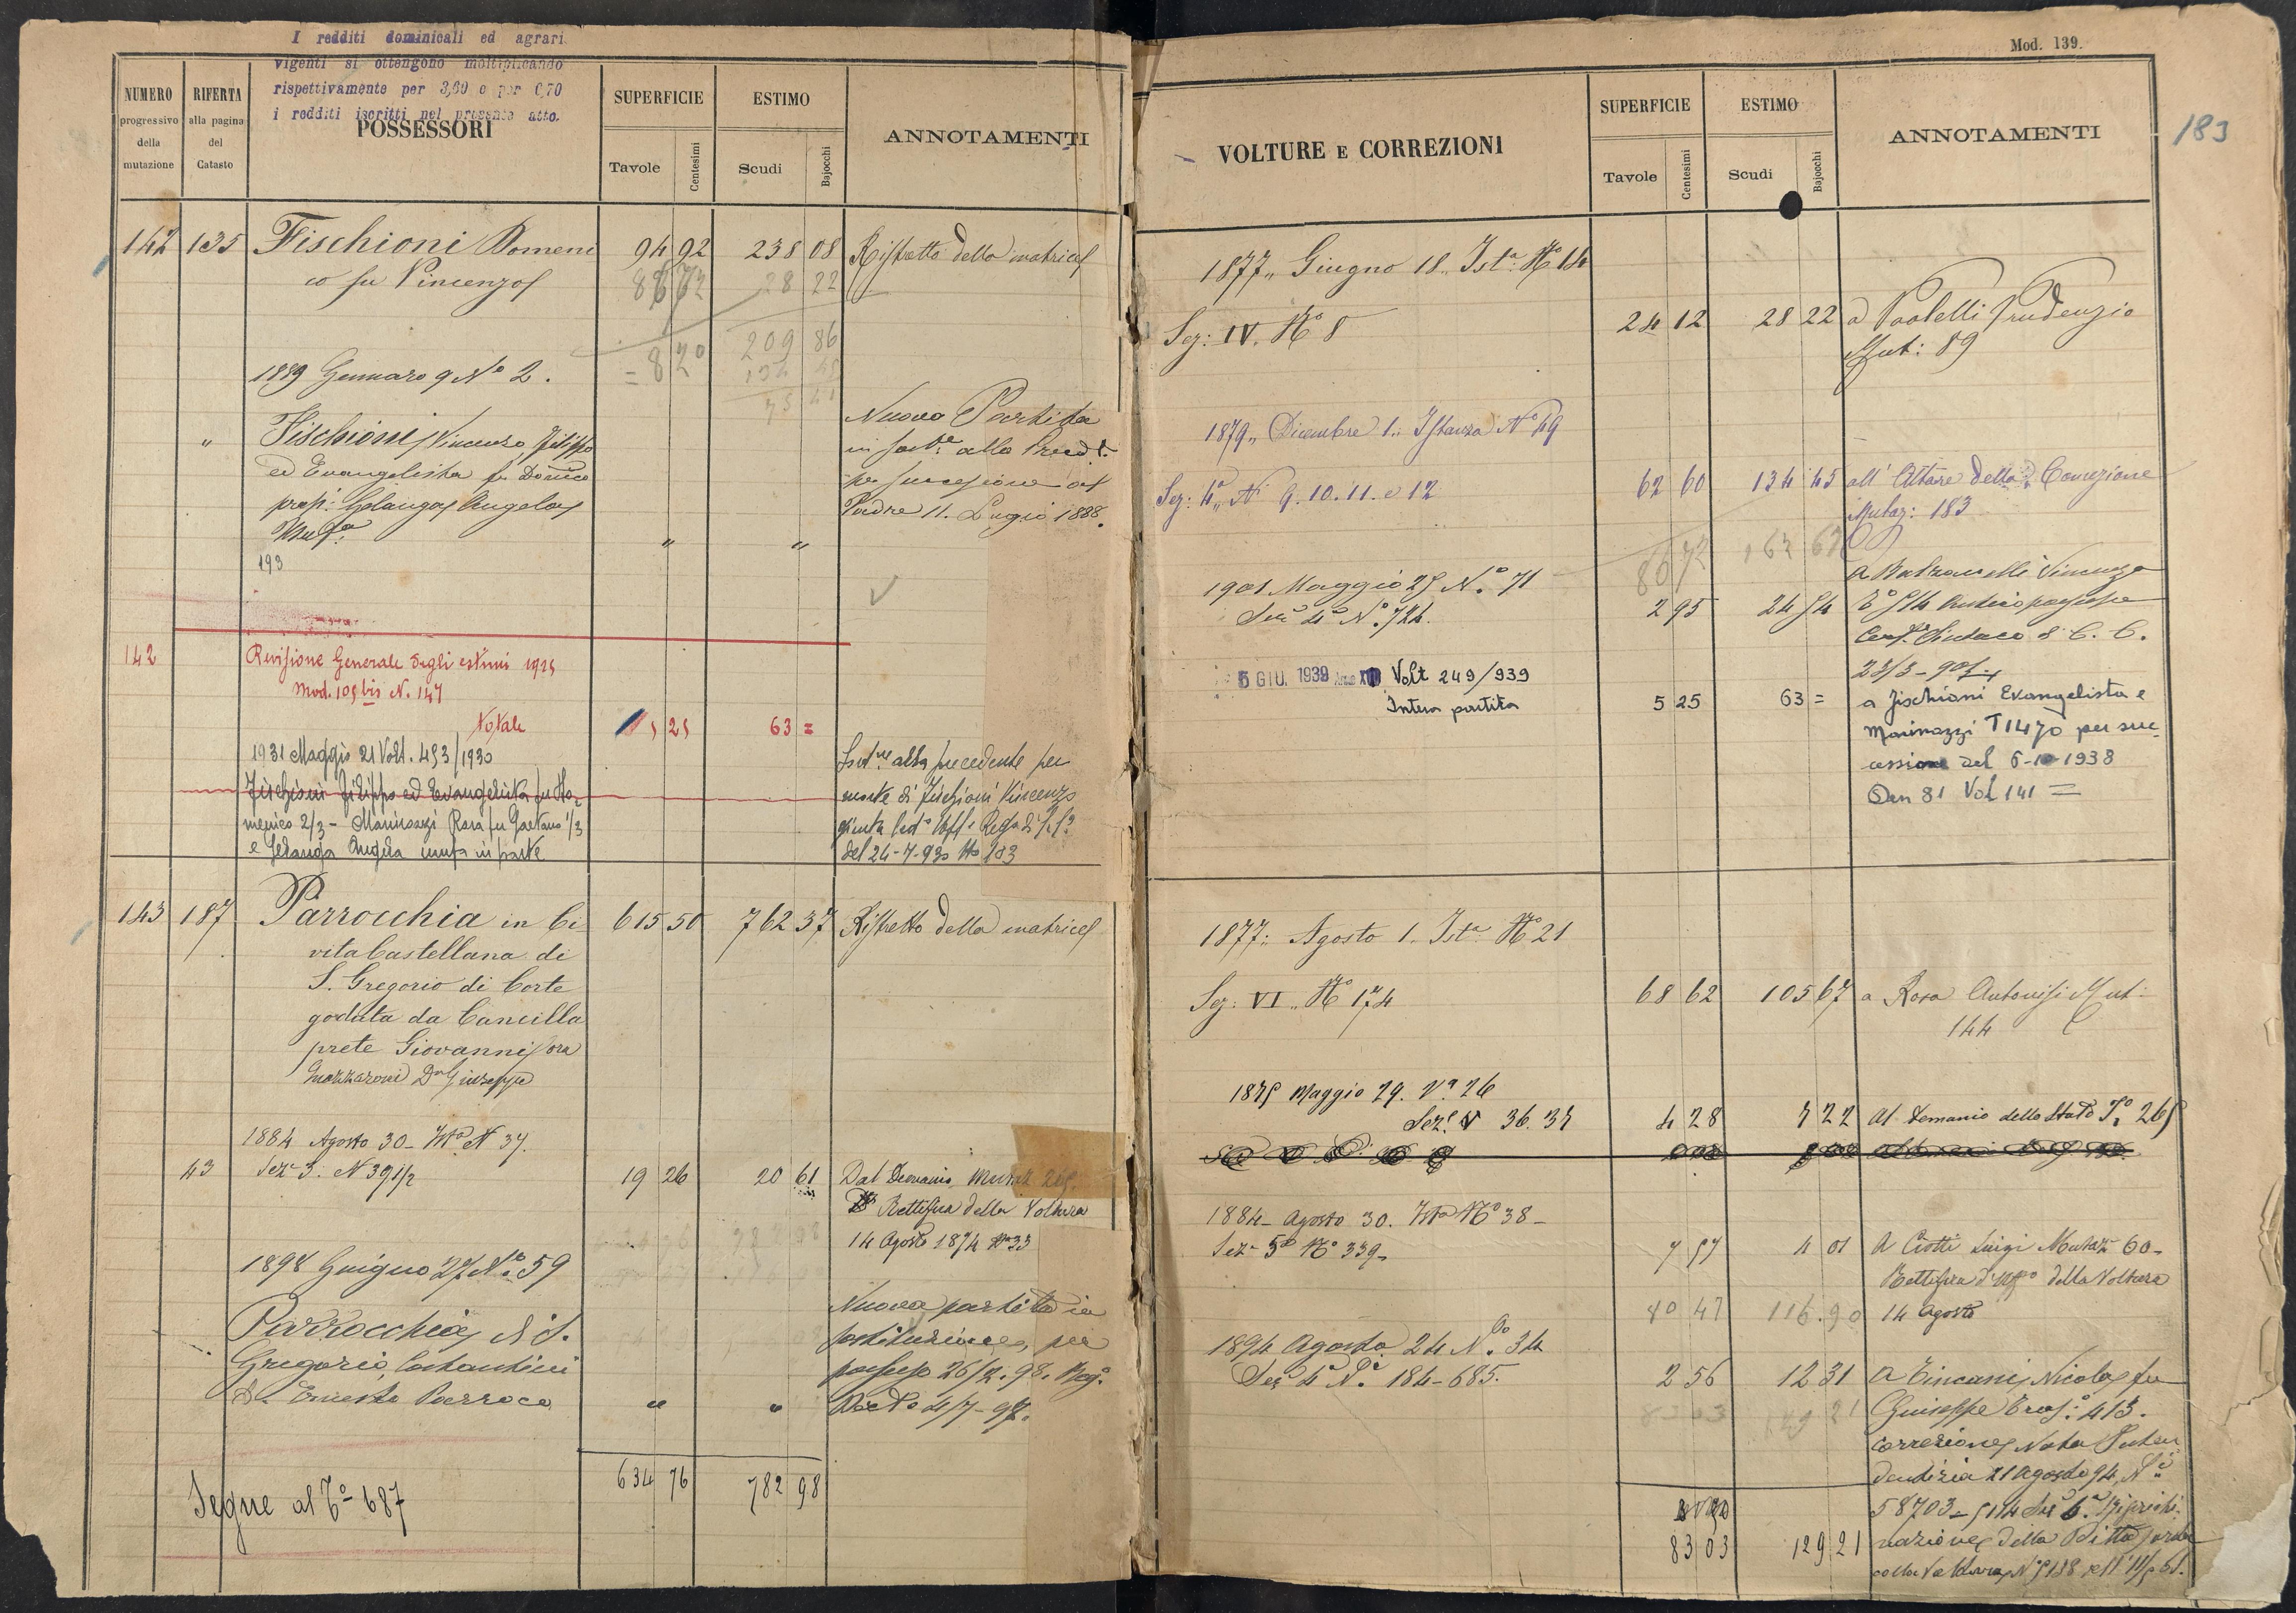 I redditi dominicali ed agrari
vigenti si ottengono moltiplicando
rispettivamente per 3,60 e per 0,70
i redditi iscritti nel presente atto.
NUMERO progressivo della mutazione
RIFERTA alla pagina del Catasto
POSSESSORI
SUPERFICIE
Tavole Centesimi
ESTIMO
Scudi Bajocchi
ANNOTAMENTI
142 135 Fischioni Domeni 94 92 238 08 Ristretto della matrice
co fu Vincenzo 86 72 28 22
209 86
1889 Gennaro 9 No 2. = 8 20 134 45
Nuova Partita
" Fischioni Vincenzo Filippo
in sost.e alla Preced.
ed Evangelista fu Domco
per successione del
prop: Gelanga Angela
Padre 11. Lugio 1888.
Usufa " "
193
142 Revisione Generale degli estimi 1925
Mod. 109 bis N. 147
Totale 5 25 63 =
1931 Maggio 21 Volt. 453/1930
Fischioni Filippo ed Evangelista fu Do-
menico 2/3 - Maninazzi Rosa fu Gaetano 1/3
e Gelanga Angela usufa in parte
alla precedente per
morte di Fischioni Vincenzo
del 24-7-930 No 203
143 187 Parrocchia in Ci 615 50 762 37 Ristretto della matrice
vita Castellana di
S. Gregorio di Corte
goduta da Cancilla
prete Giovanni ora
Mazzaroni Dn Giuseppe
1884 Agosto 30 - Ista N 37.
43 Sez 3: N 391/2 19 26 20 61 Dal Demanio Mutaz 265.
Rettifica della Voltura
14 Agosto 1874 No 33
1898 Giugno 27 No 59
Nuova partita in
Parrocchia di S.
sostituzione, per
Gregorio, Costantini
possesso 26/2.98. Reg.
D. Ernesto Parroco " "
634 76 782 98
Segue al To 687
Mod. 139.
183
VOLTURE E CORREZIONI
SUPERFICIE
Tavole Centesimi
ESTIMO
Scudi Bajocchi
ANNOTAMENTI
1877,, Giugno 18,, Ista No 14
Sez: IV. No 8 24 12 28 22 a Paolelli Prudenzio
Mut: 89
1879,, Dicembre 1,, Istanza No 49
Sez: 4a,, Ni 9. 10. 11. e 12 62 60 134 45 all' Altare della Concezione
Mutaz: 183
86 72 162 67
1901 Maggio 25 No 71
Sez 4a No 724. 2 95 24 54
23/3-901
5 GIU. 1939 Anno XVII Volt 249/939
Intera partita 5 25 63 = a Fischioni Evangelista e
Maninazzi T 1470 per suc-
cessione del 6-10-1938
Den 81 Vol 141 =
1877,, Agosto 1,, Ista No 21
Sez: VI,, No 174 68 62 105 67 a Rosa Antonisi Mut:
144
1875 Maggio 29. No 26
Sez. V 36. 37 4 28 7 22 Al Demanio dello Stato To 265
1884 - Agosto 30. Ista No 38 -
Sez - 5a No 339 - 7 57 4 01 A Ciotti Luigi Mutaz 60 -
Rettifica d'Uffo della Voltura
80 47 116.90 14 Agosto
1894 Agosto 24 No 34
Sez 4a Ni 184-685. 2 56 12 31 A Cincani Nicola fu
Giuseppe 413.
83 03 129 21
Correzione Nota Inten
denzizia 21 Agosto 94, No
83 03 129 21